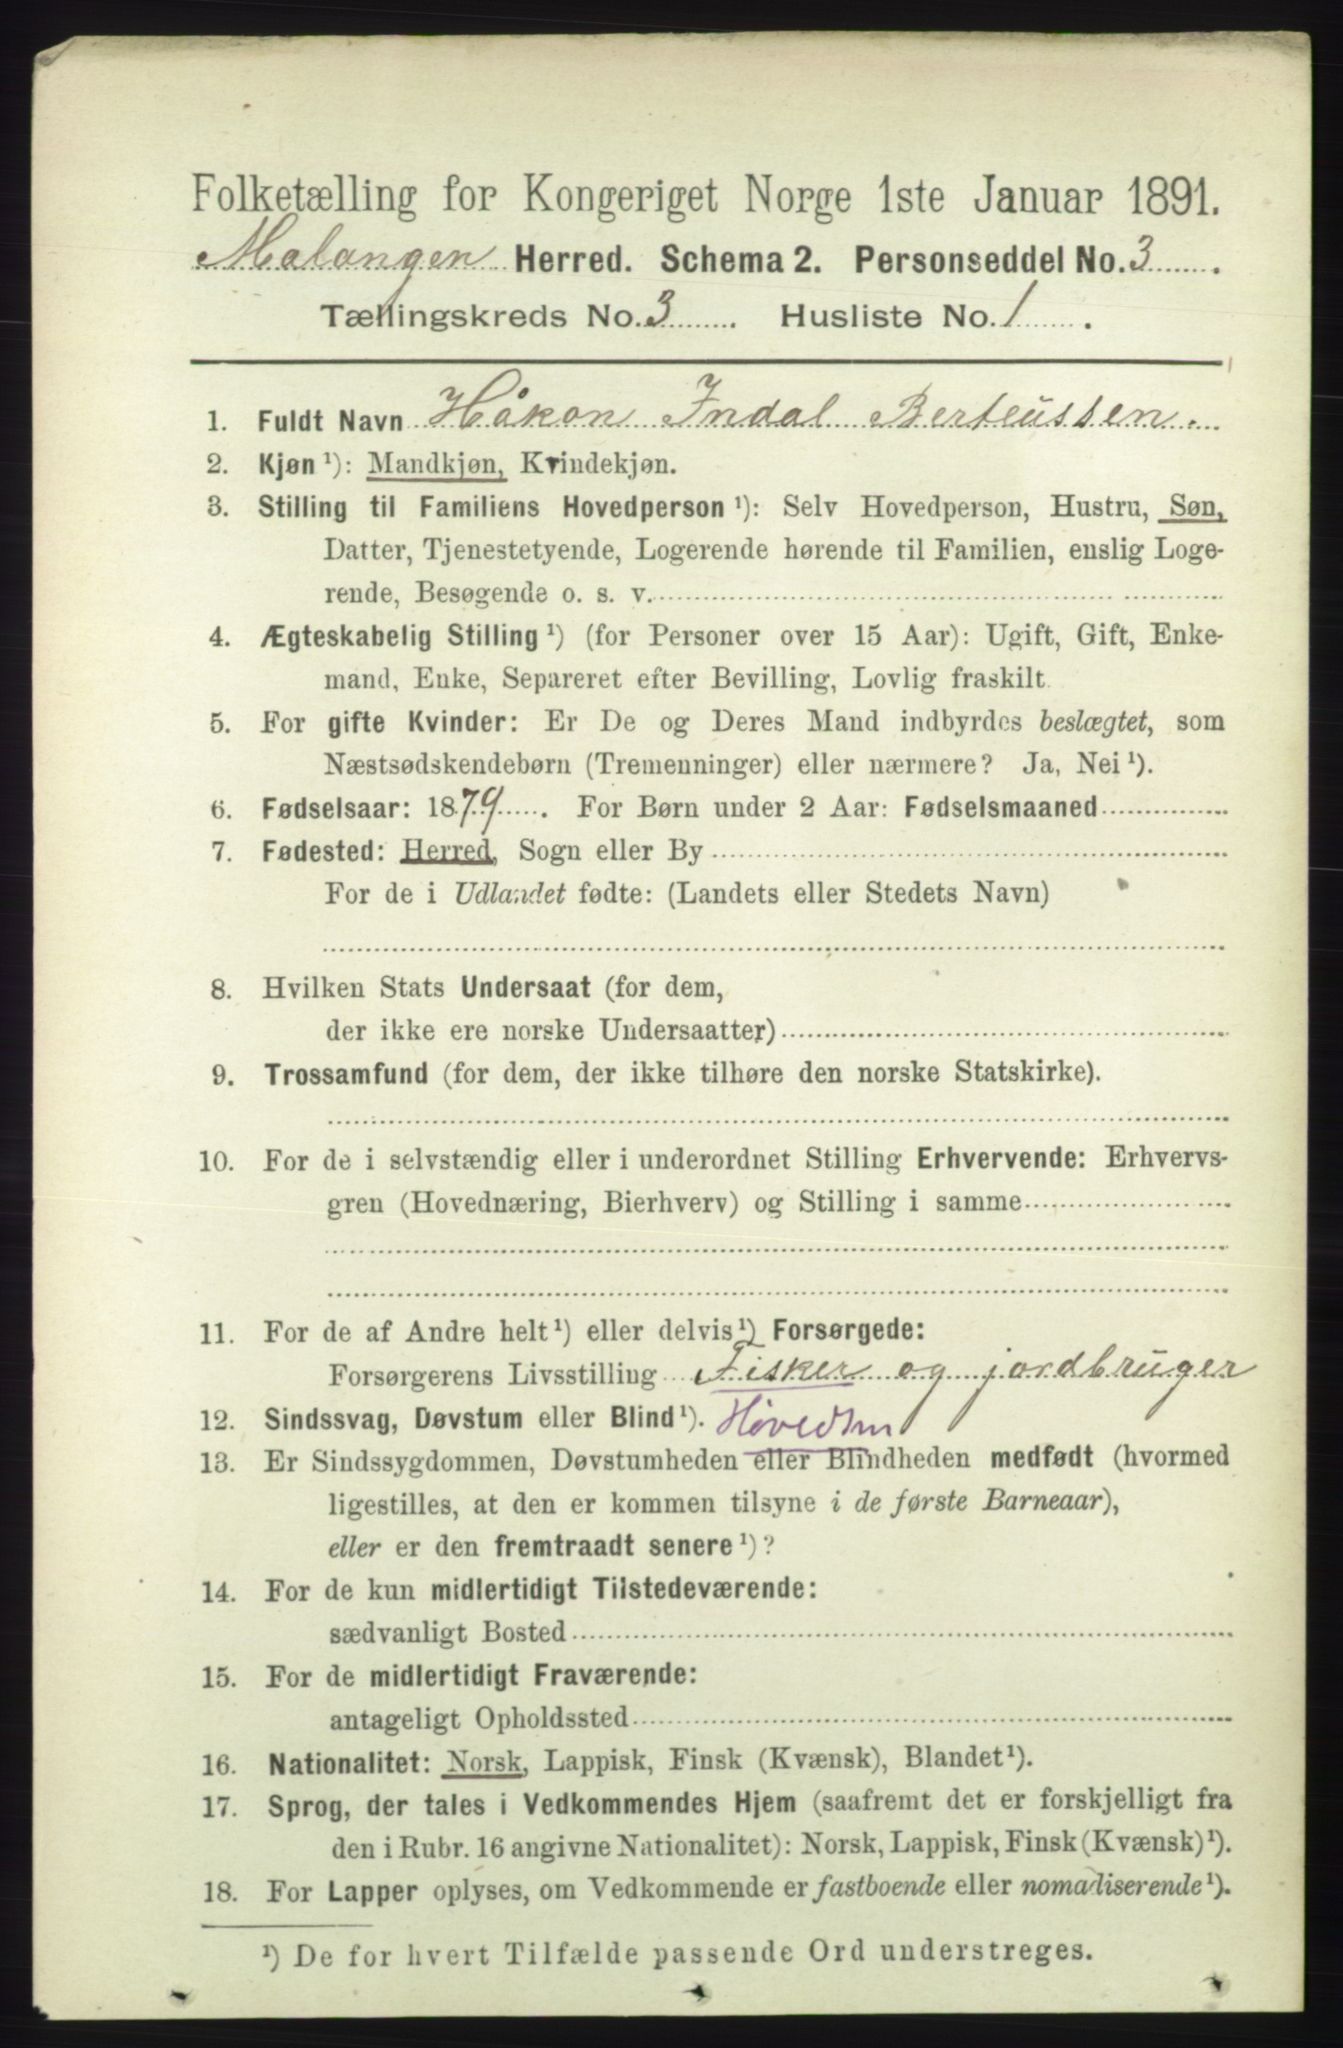 Folketælling for Kongeriget Norge 1ste Januar 1891.
Malangen Herred. Schema 2. Personseddel No. 3
Tællingskreds No. 3 Husliste No. 1
1. Fuldt Navn Håkon Indal Berteussen.
2. Kjøn ¹): Mandkjøn, Kvindekjøn.
3. Stilling til Familiens Hovedperson ¹): Selv Hovedperson, Hustru, Søn,
Datter, Tjenestetyende, Logerende hørende til Familien, enslig Loge-
rende, Besøgende o. s. v.
4. Ægteskabelig Stilling ¹) (for Personer over 15 Aar): Ugift, Gift, Enke-
mand, Enke, Separeret efter Bevilling, Lovlig fraskilt.
5. For gifte Kvinder: Er De og Deres Mand indbyrdes beslægtet, som
Næstsødskendebørn (Tremenninger) eller nærmere? Ja, Nei ¹).
6. Fødselsaar: 1879. For Børn under 2 Aar: Fødselsmaaned
7. Fødested: Herred, Sogn eller By
For de i Udlandet fødte: (Landets eller Stedets Navn)
8. Hvilken Stats Undersaat (for dem,
der ikke ere norske Undersaatter)
9. Trossamfund (for dem, der ikke tilhøre den norske Statskirke).
10. For de i selvstændig eller i underordnet Stilling Erhvervende: Erhvervs-
gren (Hovednæring, Bierhverv) og Stilling i samme
11. For de af Andre helt ¹) eller delvis ¹) Forsørgede:
Forsørgerens Livsstilling Fisker og jordbruger
12. Sindssvag, Døvstum eller Blind ¹). Hovedsn
13. Er Sindssygdommen, Døvstumheden eller Blindheden medfødt (hvormed
ligestilles, at den er kommen tilsyne i de første Barneaar),
eller er den fremtraadt senere ¹)?
14. For de kun midlertidigt Tilstedeværende:
sædvanligt Bosted
15. For de midlertidigt Fraværende:
antageligt Opholdssted
16. Nationalitet: Norsk, Lappisk, Finsk (Kvænsk), Blandet ¹).
17. Sprog, der tales i Vedkommendes Hjem (saafremt det er forskjelligt fra
den i Rubr. 16 angivne Nationalitet): Norsk, Lappisk, Finsk (Kvænsk) ¹).
18. For Lapper oplyses, om Vedkommende er fastboende eller nomadiserende ¹).
¹) De for hvert Tilfælde passende Ord understreges.